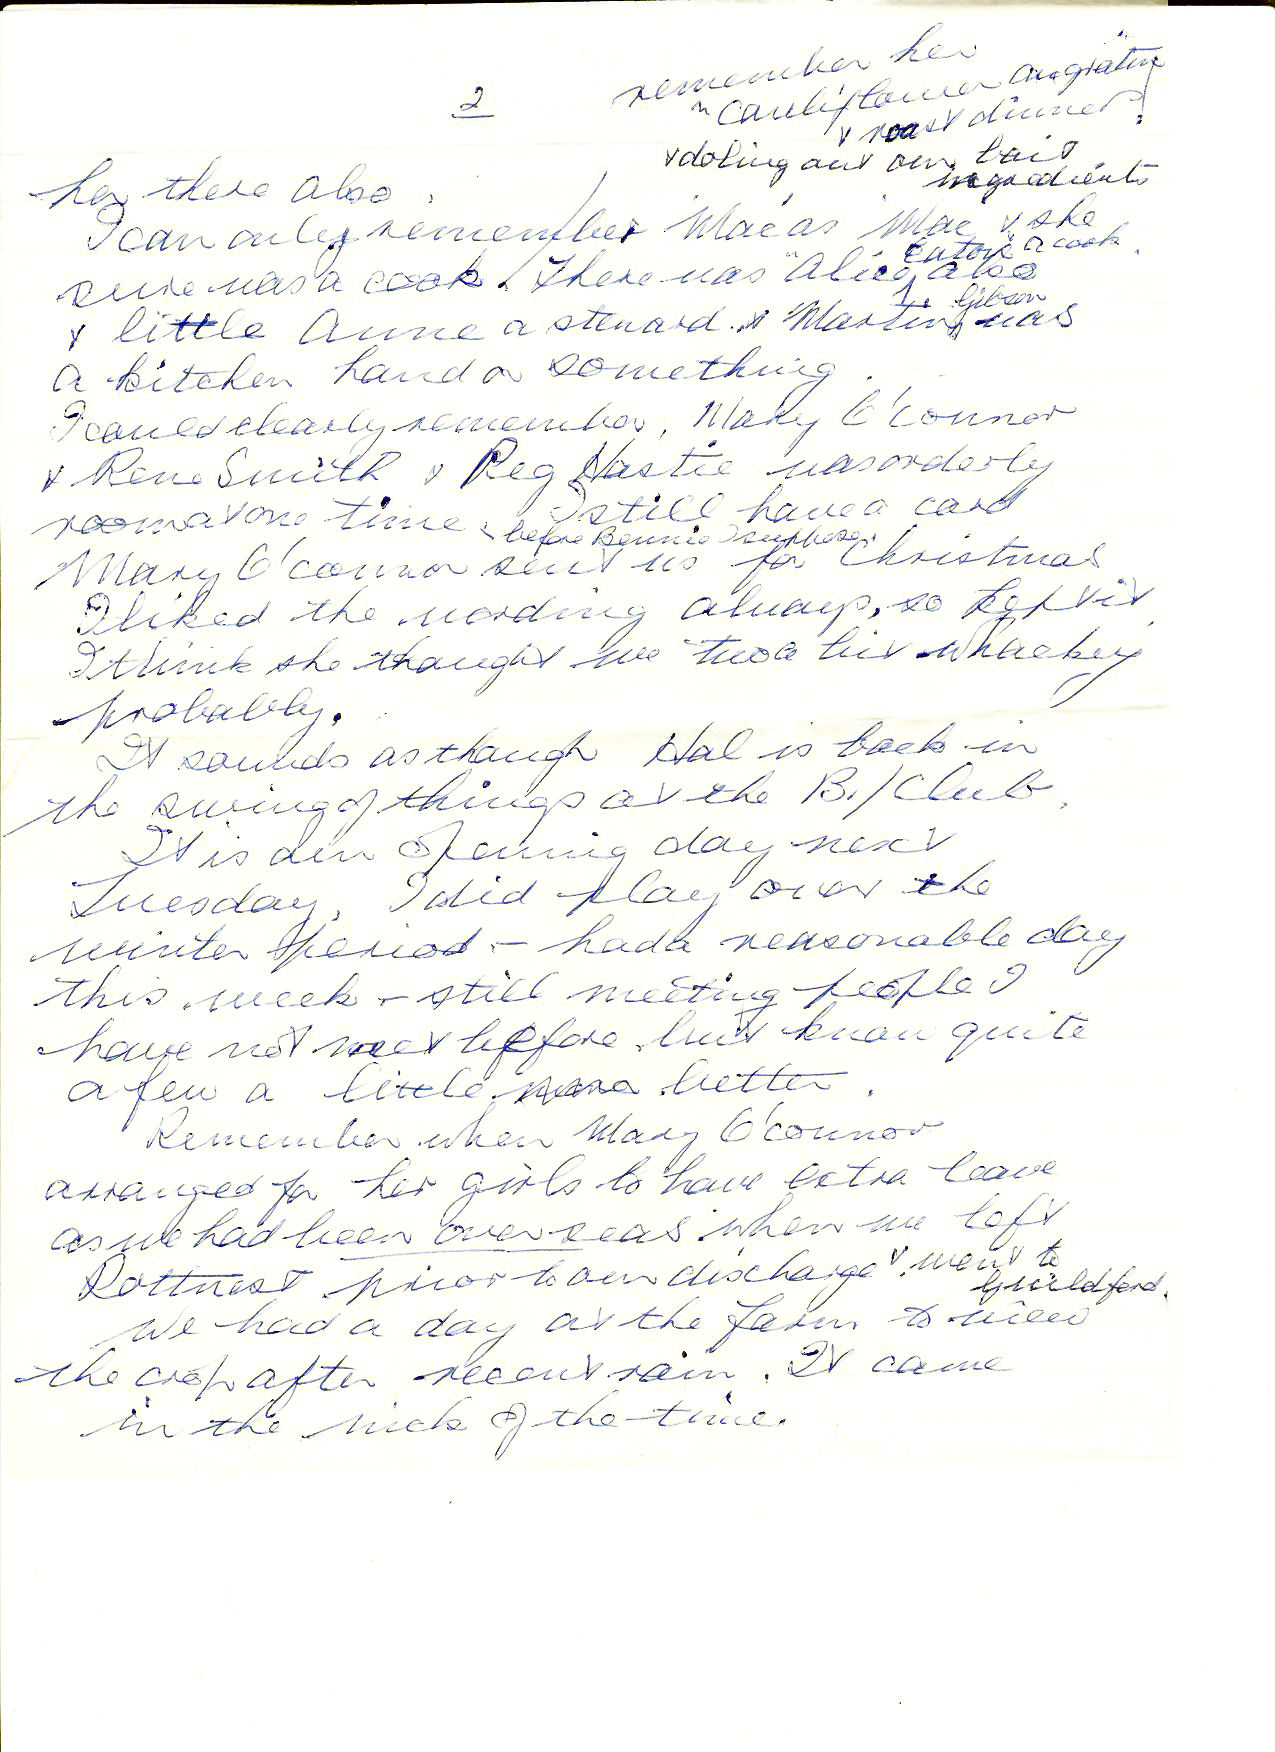 2
remember her
"Cauliflower augratin"
& roast dinner!
& doling out our bait
ingredients
her there also.
I can only remember "Mac" as "Mac" & she
sure was a cook. There was "Alice" also
Eaton a cook.
& little Anne a steward. & "Martin" was
J. Gibson
a kitchen hand or something.
I could clearly remember, Mary O'Connor
& Rene Smith & Reg Hastie was orderly
room at one time. I still have a card
before Bennie I suppose.
Mary O'connor sent us for Christmas
I liked the wording always, so kept it.
I think she thought we two a bit whackey
probably.
It sounds as though Hal is back in
the swing of things at the B./Club.
It is our Opening day next
Tuesday. I did play over the
winter period - had a reasonable day
this week - still meeting people I
have not met before but know quite
a few a little better.
Remember when Mary O'connor
arranged for her girls to have extra leave
as we had been overseas when we left
Rottnest prior to our discharge & went to
Guildford.
We had a day at the farm to view
the crop after recent rain. It came
in the nick of the time.